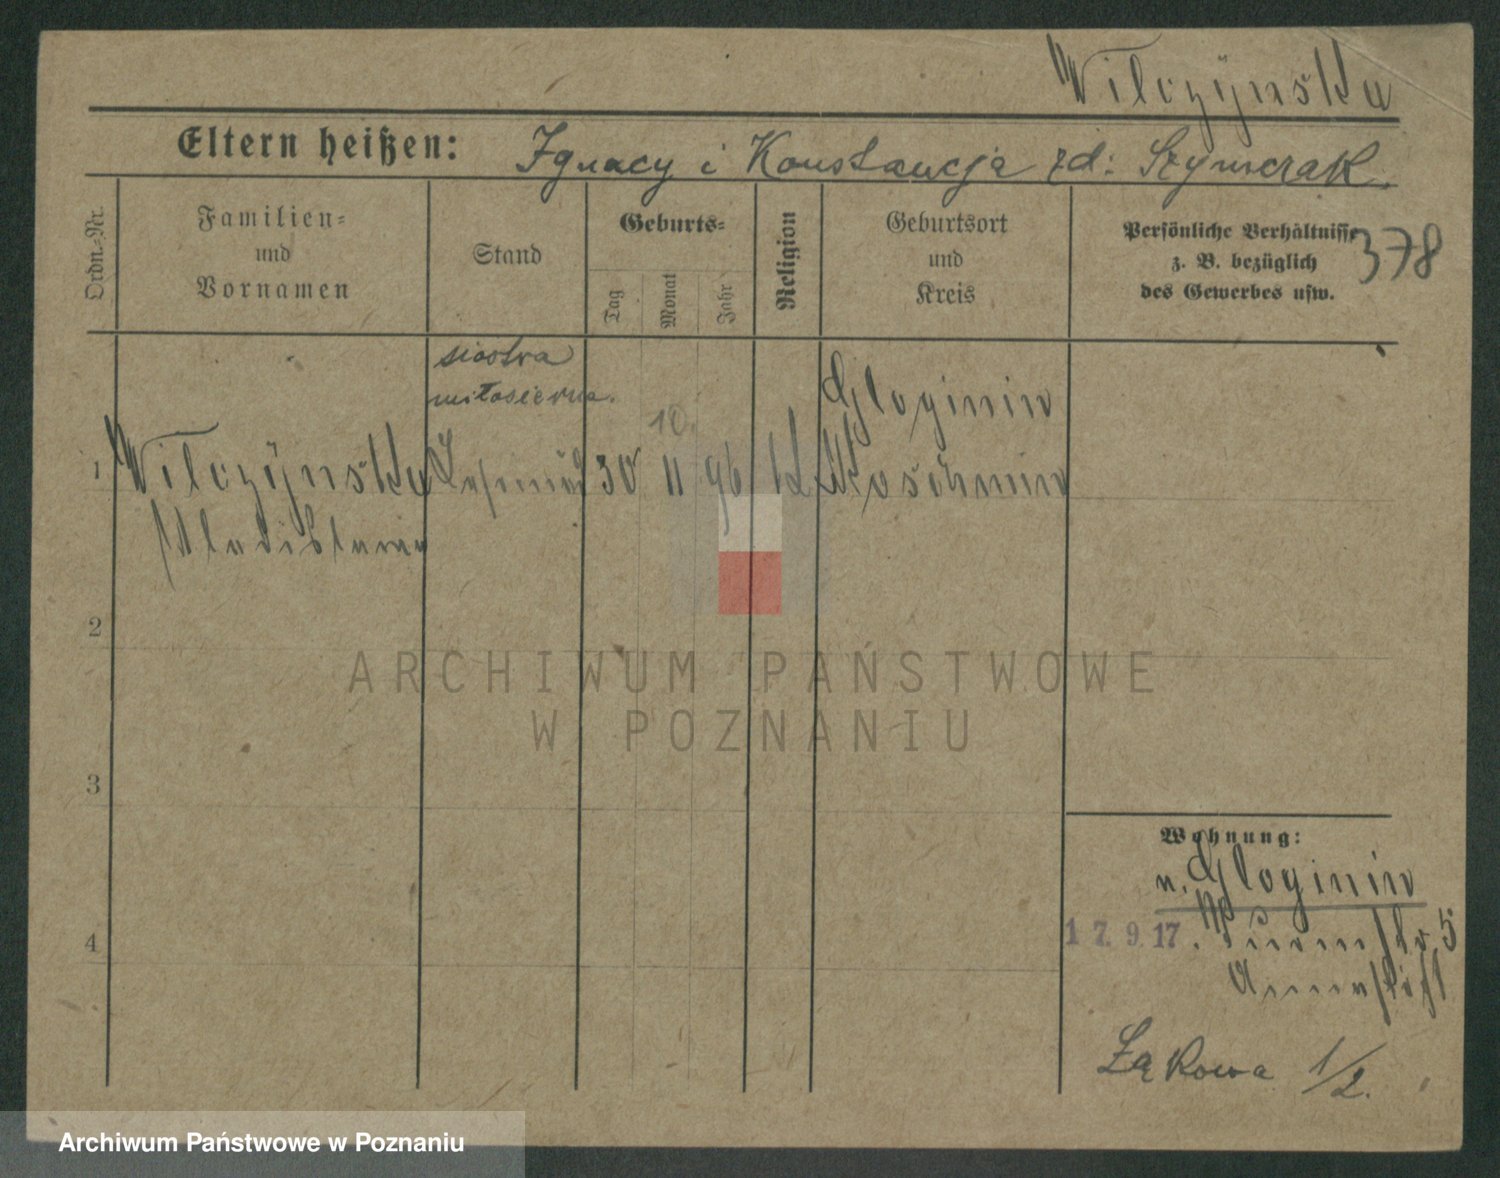 Wilczynska
Eltern heißen: Ignacy i Konstancja zd: Szymczak.
Ordn.-Nr.
Familien-
und
Vornamen
Stand
Geburts-
Tag
Monat
Jahr
Religion
Geburtsort
und
Kreis
Persönliche Verhältnisse
z. B. bezüglich
des Gewerbes usw.
378
siostra
miłosierna.
10.
Gloginin
1 Wilczynska 30 11 96 K Koschmin
Wladislawa
2
ARCHIWUM PAŃSTWOWE
W POZNANIU
3
Wohnung:
n. Gloginin
17.9.17. 5
4
Łąkowa 1/2.
Archiwum Państwowe w Poznaniu